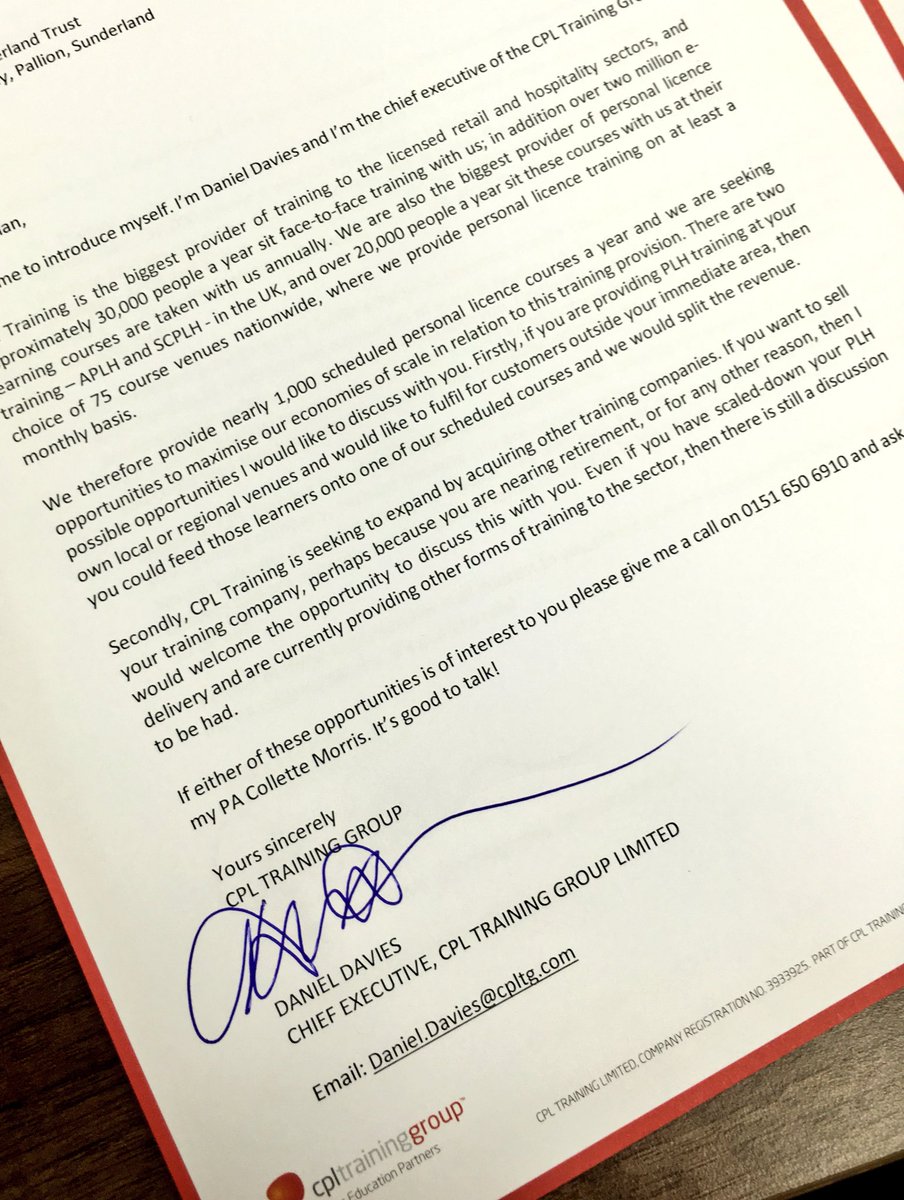 erland Trust
y, Pallion, Sunderland
an,
me to introduce myself. I'm Daniel Davies and I'm the chief executive of the CPL Training Gro
Training is the biggest provider of training to the licensed retail and hospitality sectors, and
proximately 30,000 people a year sit face-to-face training with us; in addition over two million e-
earning courses are taken with us annually. We are also the biggest provider of personal licence
training – APLH and SCPLH - in the UK, and over 20,000 people a year sit these courses with us at their
choice of 75 course venues nationwide, where we provide personal licence training on at least a
monthly basis.
We therefore provide nearly 1,000 scheduled personal licence courses a year and we are seeking
opportunities to maximise our economies of scale in relation to this training provision. There are two
possible opportunities I would like to discuss with you. Firstly, if you are providing PLH training at your
own local or regional venues and would like to fulfil for customers outside your immediate area, then
you could feed those learners onto one of our scheduled courses and we would split the revenue.
Secondly, CPL Training is seeking to expand by acquiring other training companies. If you want to sell
your training company, perhaps because you are nearing retirement, or for any other reason, then I
would welcome the opportunity to discuss this with you. Even if you have scaled-down your PLH
delivery and are currently providing other forms of training to the sector, then there is still a discussion
to be had.
If either of these opportunities is of interest to you please give me a call on 0151 650 6910 and ask
my PA Collette Morris. It's good to talk!
Yours sincerely
CPL TRAINING GROUP
DANIEL DAVIES
CHIEF EXECUTIVE, CPL TRAINING GROUP LIMITED
Email: Daniel.Davies@cpltg.com
CPL TRAINING LIMITED, COMPANY REGISTRATION NO. 3933925. PART OF CPL TRAINING
cpltraininggroup™
Education Partners